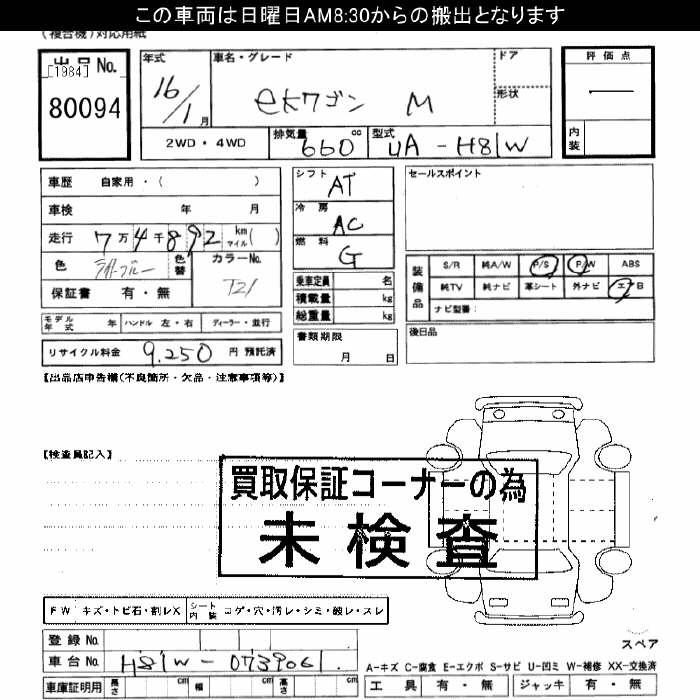 この車両は日曜日AM8:30からの搬出となります
(複合機)対応用紙
出品 No.
[1984]
80094
年式
16/1月
車名・グレード
eKワゴン M
ドア
形状
2WD・4WD
排気量 660 cc
型式 UA-H81W
評価点
―
内装
車歴 自家用・( )
車検 年 月
走行 7万4千892 km マイル( )
色 ライトブルー 色替
カラーNo. T21
保証書 有・無
モデル年式 年 ハンドル 左・右 ディーラー・並行
リサイクル料金 9,250 円 預託済
シフト AT
冷房 AC
燃料 G
乗車定員 名
積載量 kg
総重量 kg
書類期限
月 日
セールスポイント
装備品
S/R 純A/W P/S P/W ABS
純TV 純ナビ 革シート 外ナビ エアB
ナビ型番:
後日品
【出品店申告欄(不良箇所・欠品・注意事項等)】
【検査員記入】
買取保証コーナーの為
未検査
FW キズ・トビ石・割レX シート内装 コゲ・穴・汚レ・シミ・破レ・スレ
登録 No.
車台 No. H81W-0739061
車庫証明用 長さ cm 幅 cm 高さ cm
スペア
A-キズ C-腐食 E-エクボ S-サビ U-凹ミ W-補修 XX-交換済
工具 有・無 ジャッキ 有・無